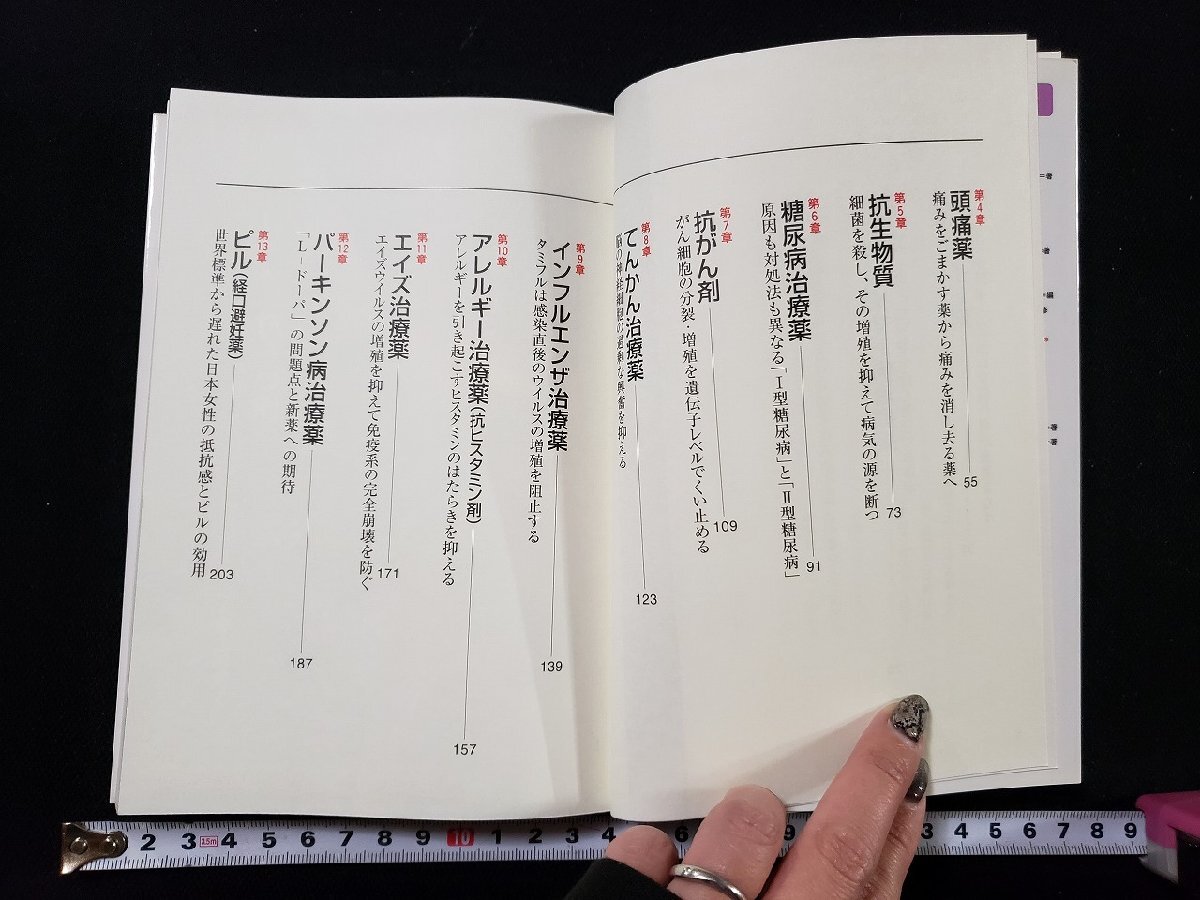 第4章
頭痛薬
55
痛みをごまかす薬から痛みを消し去る薬へ
第5章
抗生物質
73
細菌を殺し、その増殖を抑えて病気の源を断つ
第6章
糖尿病治療薬
91
原因も対処法も異なる「Ⅰ型糖尿病」と「Ⅱ型糖尿病」
第7章
抗がん剤
109
がん細胞の分裂・増殖を遺伝子レベルでくい止める
第8章
てんかん治療薬
123
脳の神経細胞の過剰な興奮を抑える
第9章
インフルエンザ治療薬
139
タミフルは感染直後のウイルスの増殖を阻止する
第10章
アレルギー治療薬(抗ヒスタミン剤)
157
アレルギーを引き起こすヒスタミンのはたらきを抑える
第11章
エイズ治療薬
171
エイズウイルスの増殖を抑えて免疫系の完全崩壊を防ぐ
第12章
パーキンソン病治療薬
187
「L-ドーパ」の問題点と新薬への期待
第13章
ピル(経口避妊薬)
203
世界標準から遅れた日本女性の抵抗感とピルの効用
2 3 15m 4 5 6 7 8 9 10 1 2 3 6 9 3 4 5 6 7 8 9